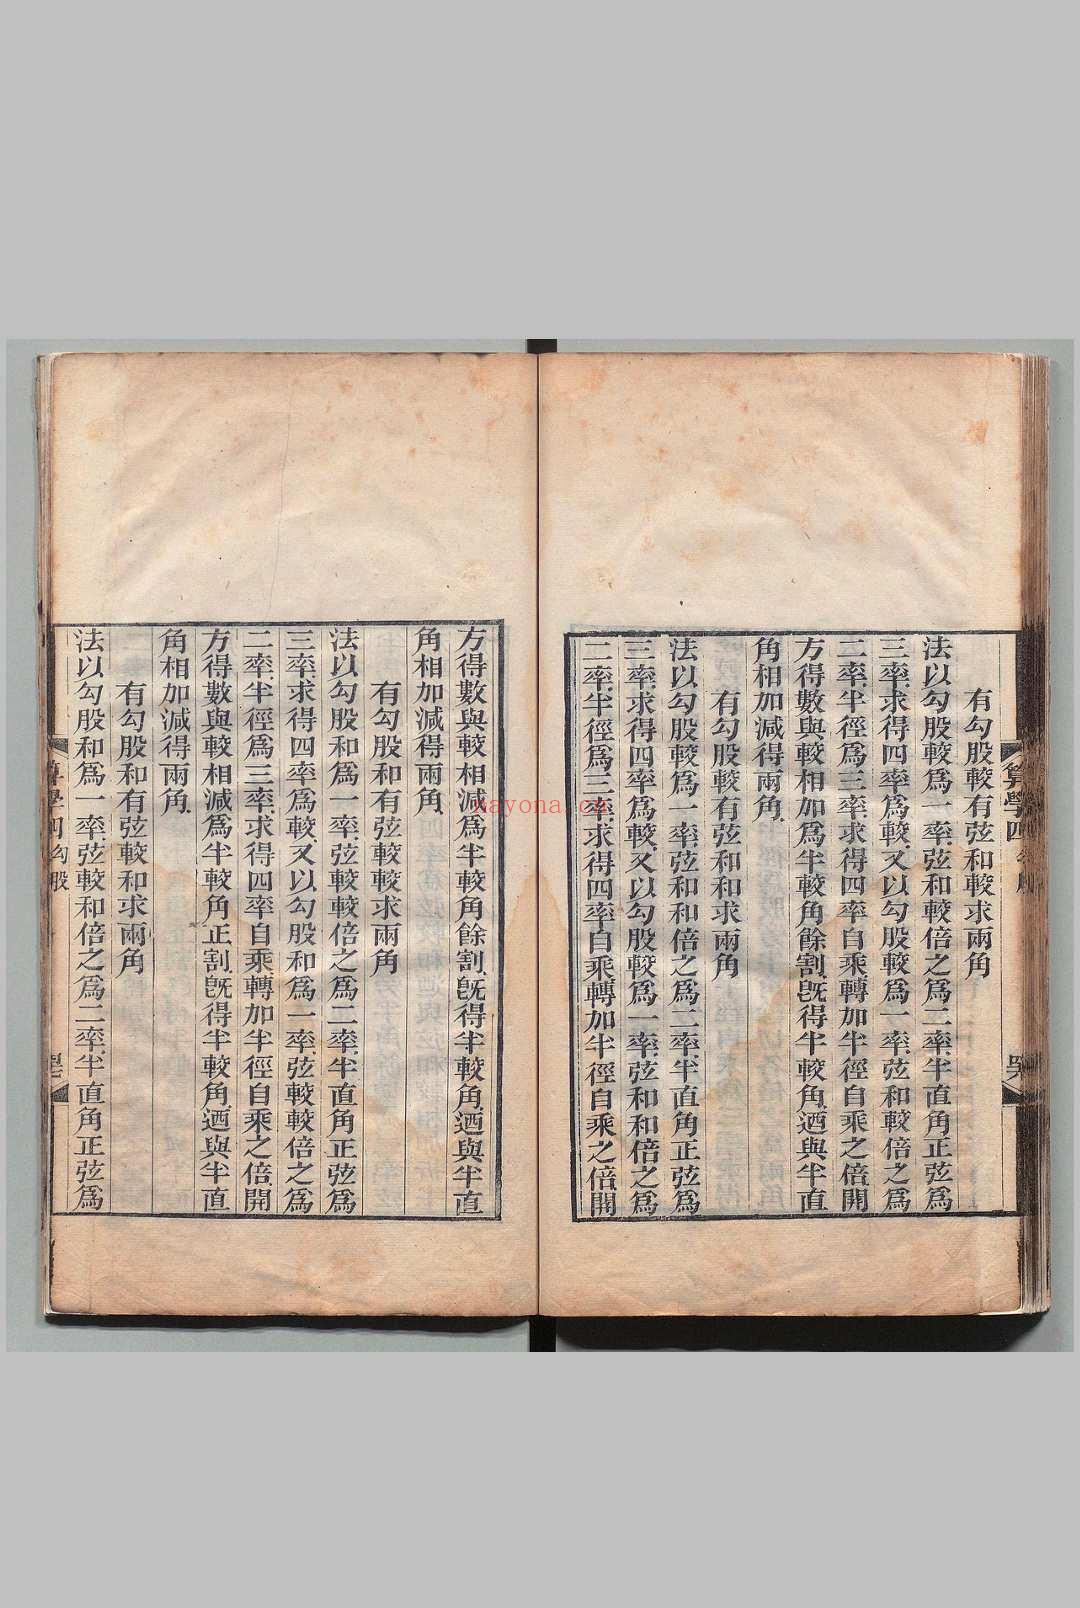 有勾股較有弦和較求兩角
法以勾股較爲一率弦和較倍之爲二率半直角正弦爲
三率求得四率爲較又以勾股較爲一率弦和較倍之爲
二率半徑爲三率求得四率自乘轉加半徑自乘之倍開
方得數與較相加爲半較角餘割旣得半較角迺與半直
角相加減得兩角
有勾股較有弦和和求兩角
法以勾股較爲一率弦和和倍之爲二率半直角正弦爲
三率求得四率爲較又以勾股較爲一率弦和和倍之爲
二率半徑爲三率求得四率自乘轉加半徑自乘之倍開
方得數與較相減爲半較角餘割旣得半較角迺與半直
角相加減得兩角
有勾股和有弦較較求兩角
法以勾股和爲一率弦較較倍之爲二率半直角正弦爲
三率求得四率爲較又以勾股和爲一率弦較較倍之爲
二率半徑爲三率求得四率自乘轉加半徑自乘之倍開
方得數與較相減爲半較角正割旣得半較角迺與半直
角相加減得兩角
有勾股和有弦較和求兩角
法以勾股和爲一率弦較和倍之爲二率半直角正弦爲
算學四 勾股
算學四
nayona.cn